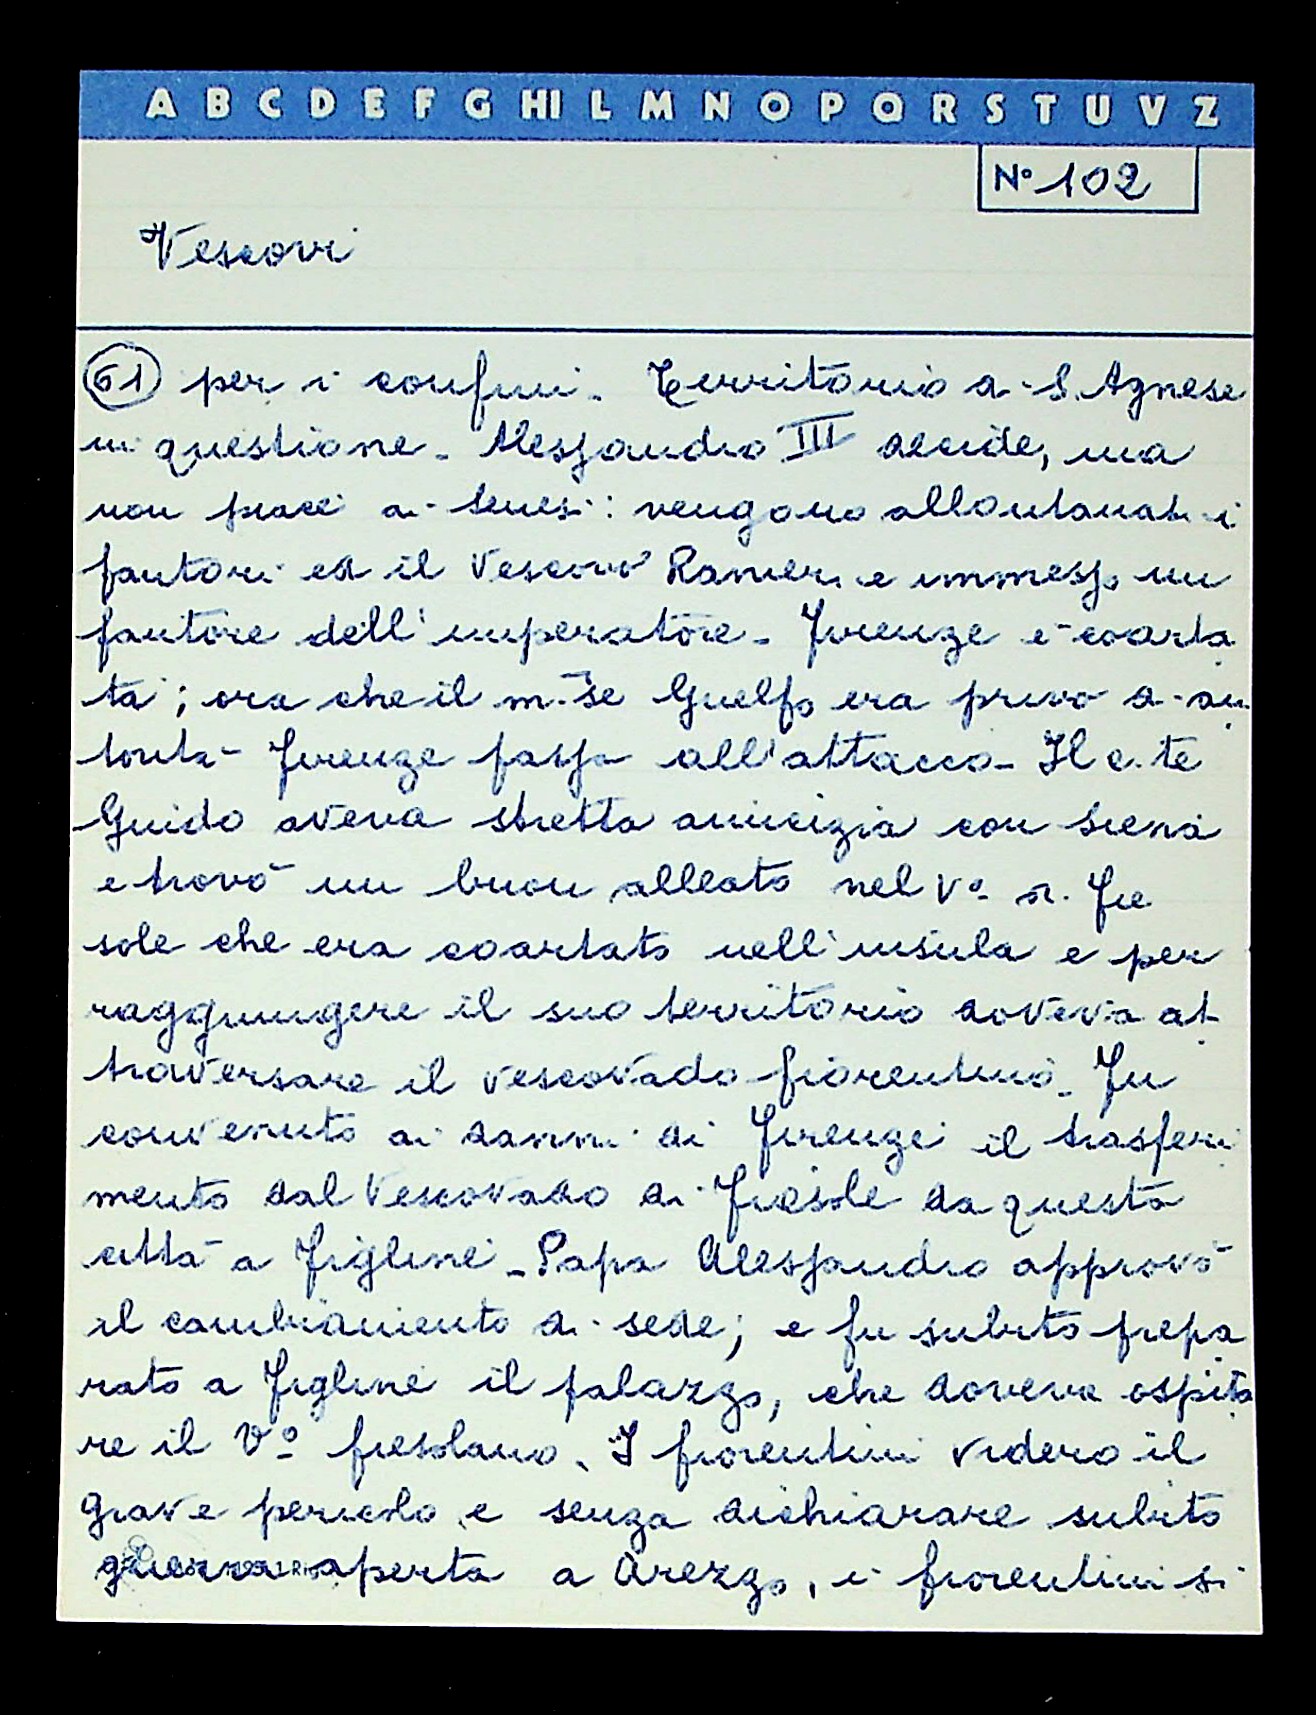 A B C D E F G HI L M N O P Q R S T U V Z
N° 102
Vescovi
61) per i confini. Territorio di S. Agnese
in questione. Alessandro III decide, ma
non piace ai senesi: vengono allontanati i
fautori ed il Vescovo Ranieri e immesso un
fautore dell'imperatore. Firenze è coarta
ta; ora che il m.se Guelfo era privo di au
torità Firenze passa all'attacco. Il c.te
Guido aveva stretta amicizia con Siena
e trovò un buon alleato nel V° di Fie
sole che era coartato nell'insula e per
raggiungere il suo territorio doveva at
traversare il vescovado fiorentino. Fu
convenuto ai danni di Firenze il trasferi
mento dal Vescovado di Fiesole da questa
città a Figline. Papa Alessandro approvò
il cambiamento di sede; e fu subito prepa
rato a Figline il palazzo, che doveva ospita
re il V° fiesolano. I fiorentini videro il
grave pericolo e senza dichiarare subito
guerra aperta a Arezzo, i fiorentini si